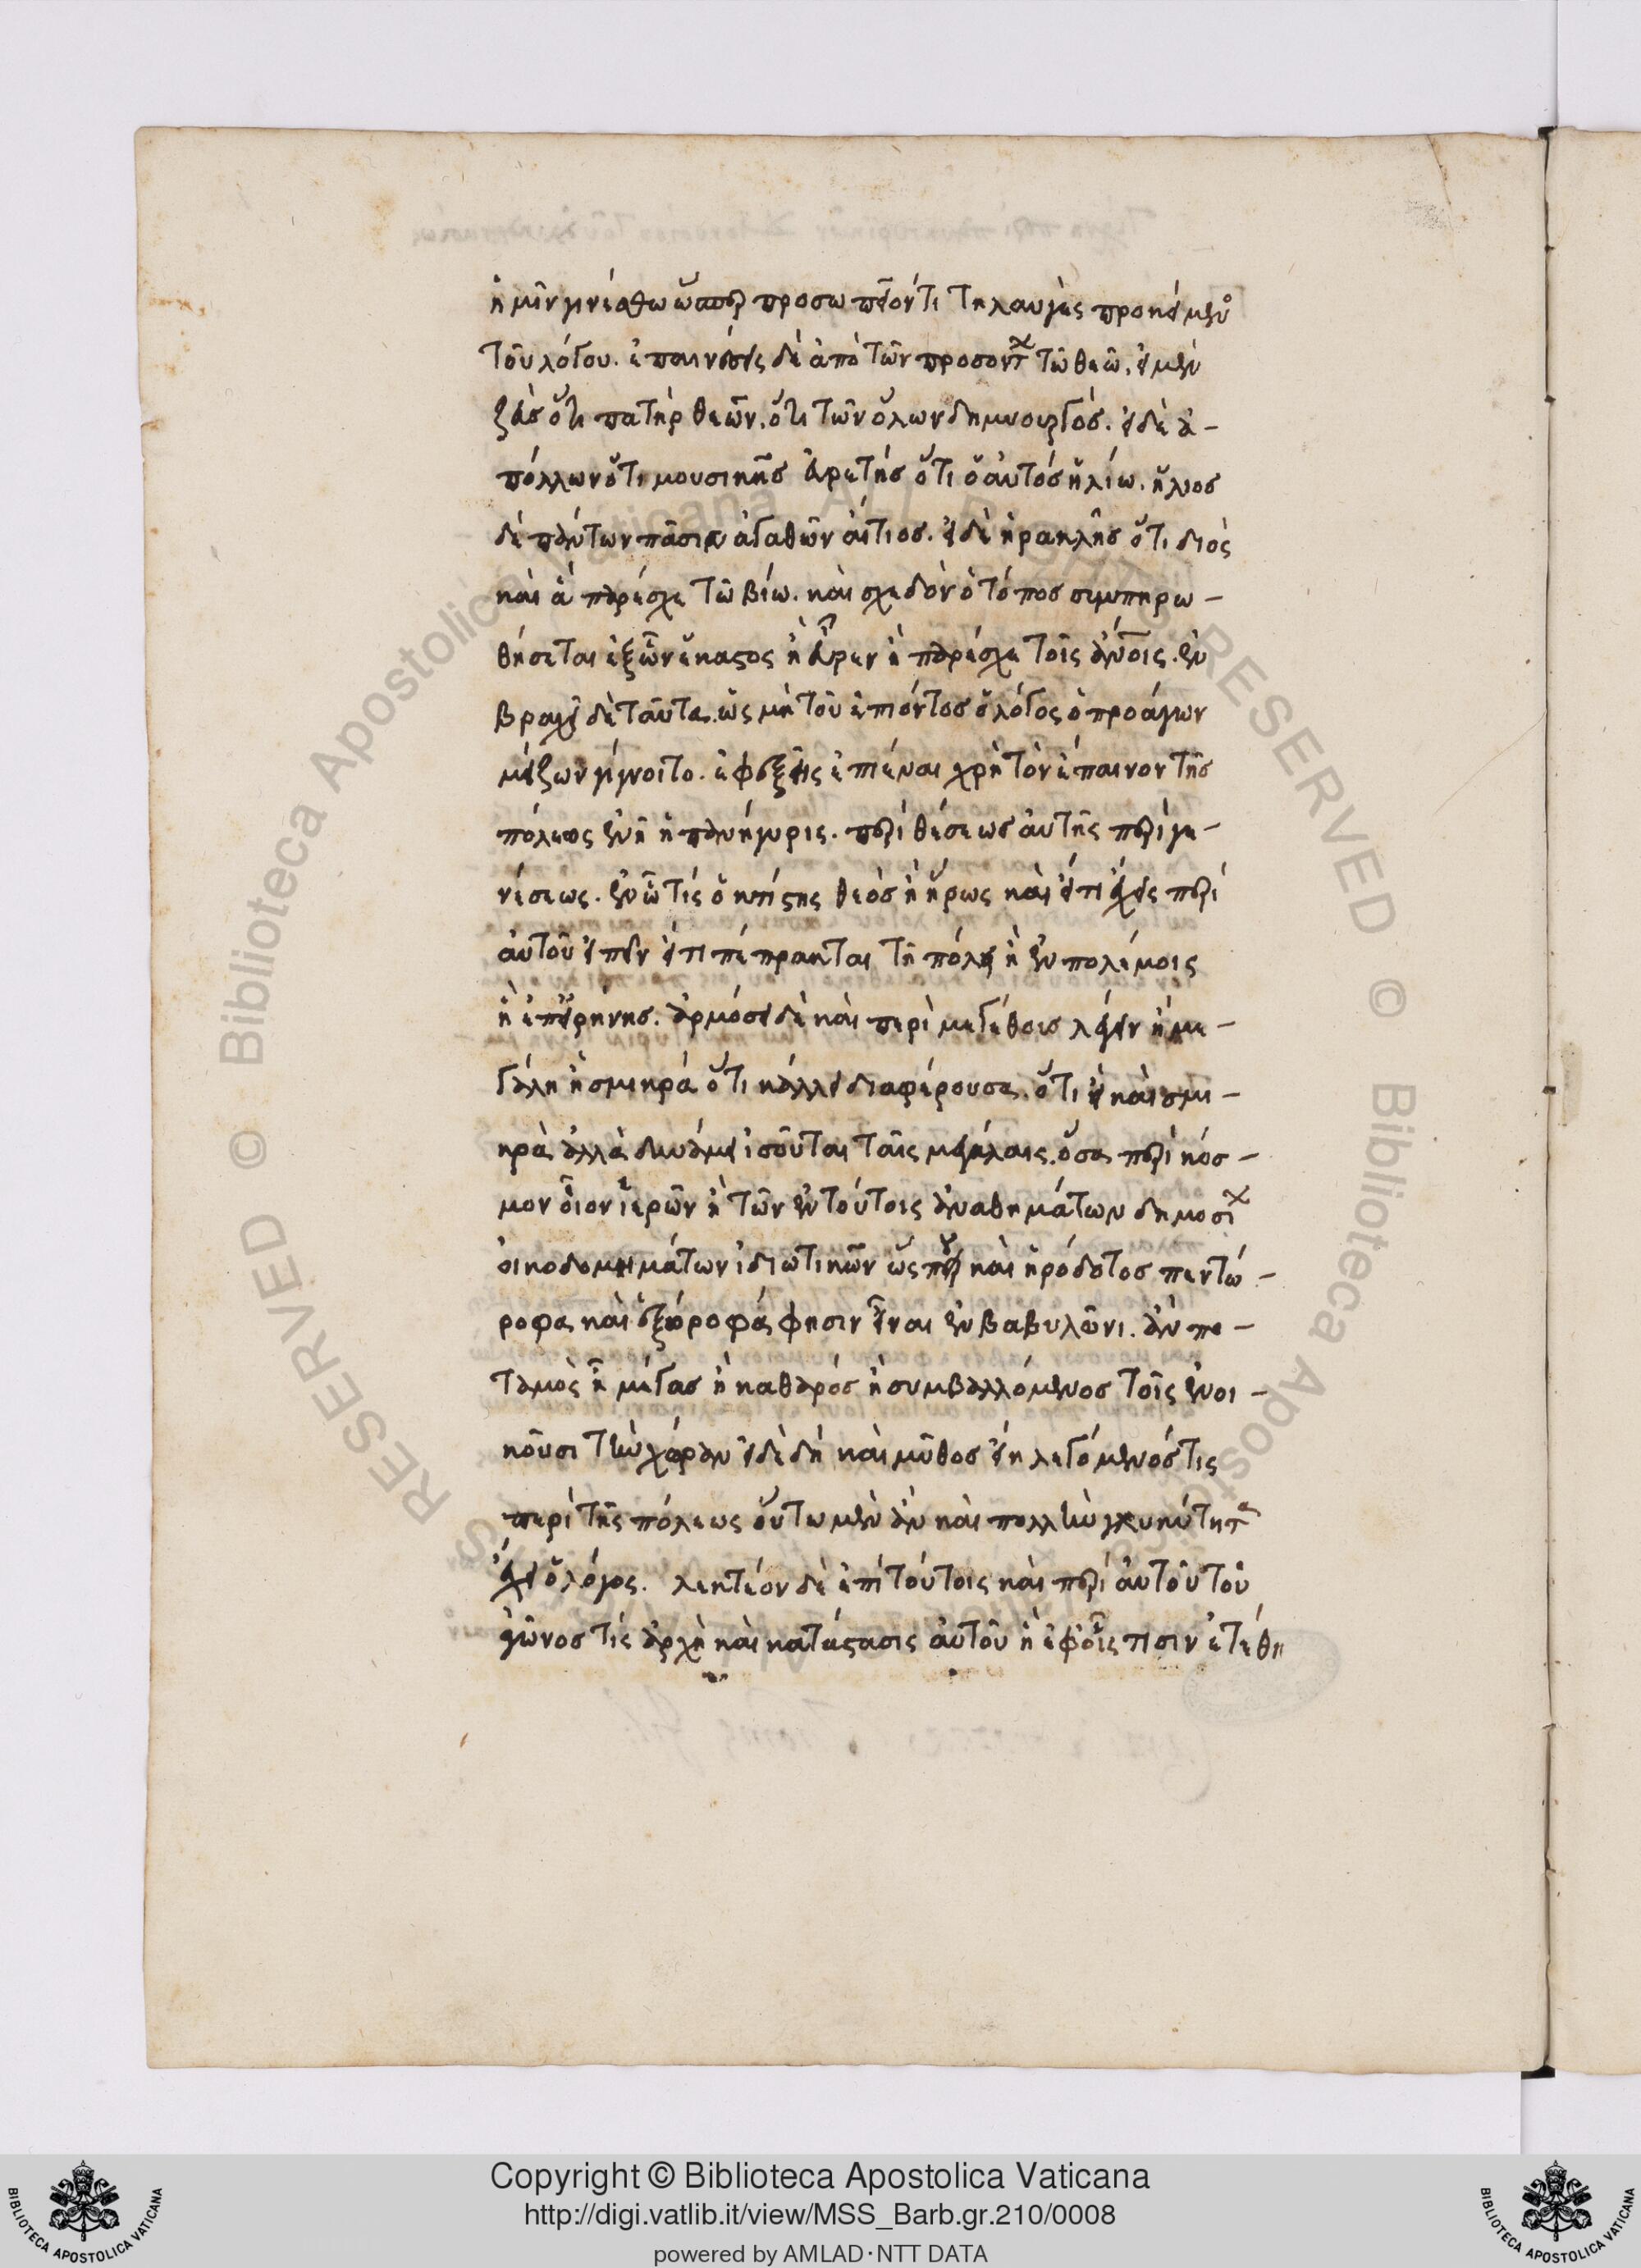 ἡμῖν γινέσθω ὥσπερ προσωπεῖόν τι τηλαυγὲς προκείμενον
τοῦ λόγου. ἐπαινέσεις δὲ ἀπὸ τῶν προσόντων τῶ θεῶ. εἰ μὲν
ζεὺς ὅτι πατὴρ θεῶν. ὅτι τῶν ὅλων δημιουργός. εἰ δὲ ἀ-
πόλλων ὅτι μουσικῆς εὑρετής ὅτι ὁ αὐτός ἡλίω. ἥλιος
δὲ πάντων πᾶσιν ἀγαθῶν αἴτιος. εἰ δὲ ἡρακλῆς ὅτι διὸς
καὶ ἃ παρέσχε τῶ βίω. καὶ σχεδὸν ὁ τόπος συμπληρω-
θήσεται ἐξ ὧν ἕκαστος ἢ εὗρεν ἢ παρέσχε τοῖς ἀνθρώποις. ἐν
βραχεῖ δὲ ταῦτα. ὡς μὴ τοῦ ἐπιόντος ὁ λόγος ὁ προάγων
μείζων γίγνοιτο. ἐφεξῆς ἐπιέναι χρὴ τὸν ἔπαινον τῆς
πόλεως ἐν ᾗ ἡ πανήγυρις. περὶ θέσεως αὐτῆς περὶ γε-
νέσεως. ἐν ᾧ τίς ὁ κτίστης θεὸς ἢ ἥρως καὶ εἴ τι ἔχεις περὶ
αὐτοῦ εἰπεῖν εἴ τι πέπρακται τῇ πόλει ἢ ἐν πολέμοις
ἢ ἐπ' εἰρήνης. ἁρμόσει δὲ καὶ περὶ μεγέθους λέγειν ἢ με-
γάλη ἢ σμικρά ὅτι κάλλει διαφέρουσα. ὅτι εἰ καὶ σμι-
κρὰ ἀλλὰ δυνάμει ἰσοῦται ταῖς μεγάλαις. ὅσα περὶ κόσ-
μον οἷον ἱερῶν ἢ τῶν ἐν τούτοις ἀναθημάτων δημοσίων
οἰκοδομημάτων ἰδιωτικῶν ὥς που καὶ ἡρόδοτος πεντώ-
ροφα καὶ ἑξώροφά φησιν εἶναι ἐν βαβυλῶνι. ἂν πο-
ταμὸς ᾖ μέγας ἢ καθαρός ἢ συμβαλλόμενος τοῖς ἐνοι-
κοῦσι τὴν χώραν εἰ δὲ δὴ καὶ μῦθος εἴη λεγόμενός τις
περὶ τῆς πόλεως οὕτω μὲν ἂν καὶ πολλὴν γλυκύτητα
ἔχει ὁ λόγος. λεκτέον δὲ ἐπὶ τούτοις καὶ περὶ αὐτοῦ τοῦ
ἀγῶνος τίς ἀρχὴ καὶ κατάστασις αὐτοῦ ἢ ἐφ' οἷς τισιν ἐτέθη
Copyright © Biblioteca Apostolica Vaticana
http://digi.vatlib.it/view/MSS_Barb.gr.210/0008
powered by AMLAD·NTT DATA